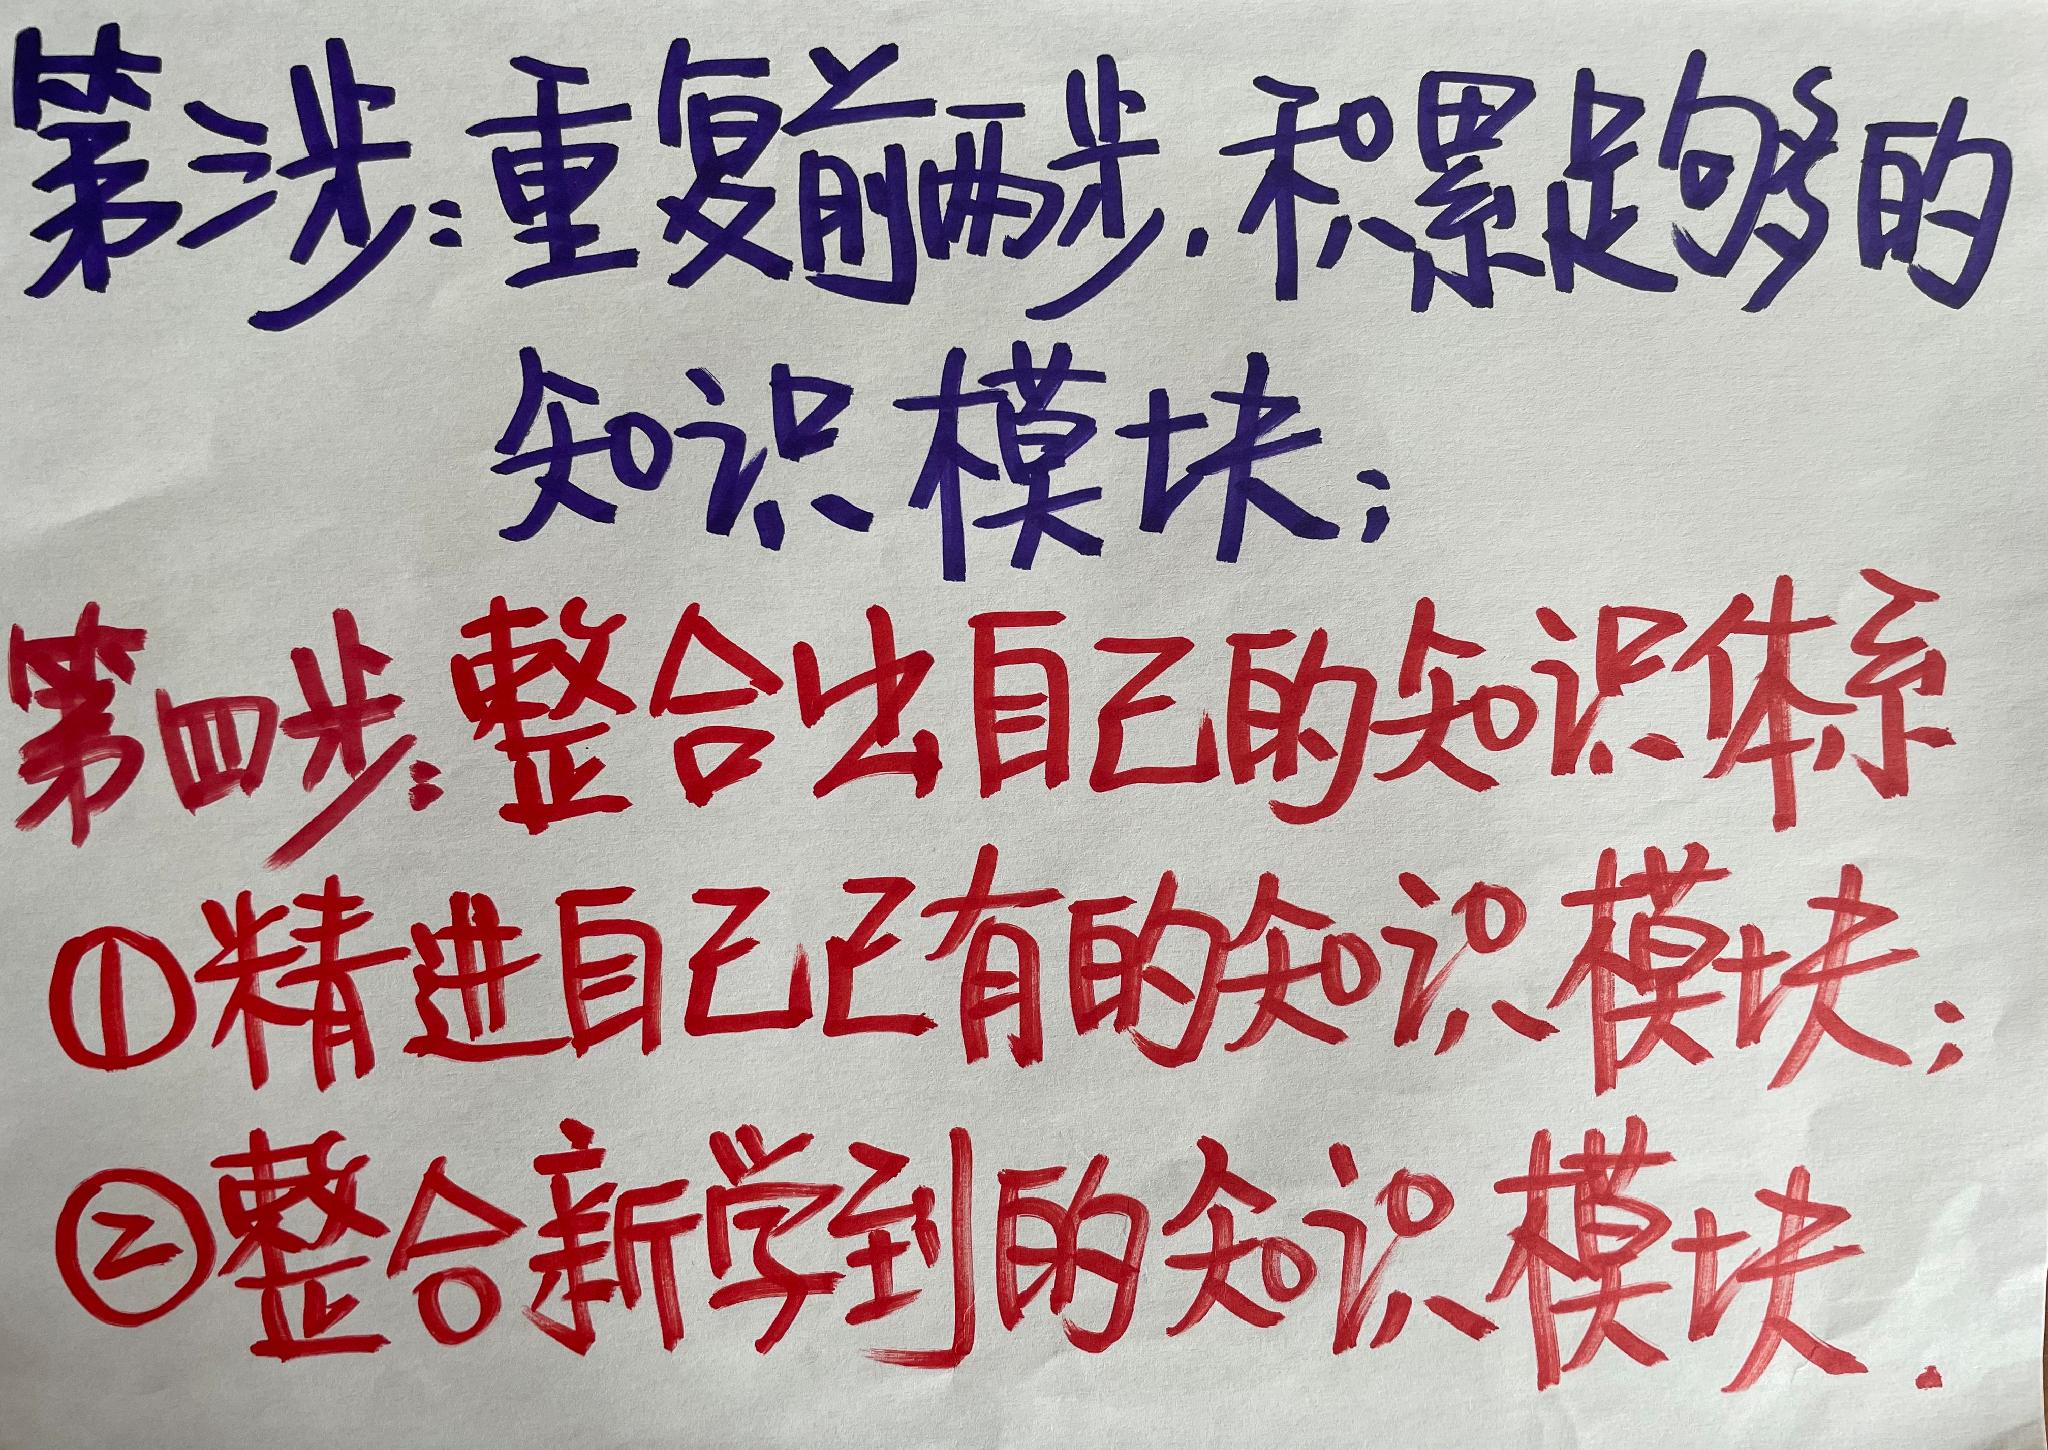 第三步：重复前两步.积累足够的
知识模块；
第四步：整合出自己的知识体系
①精进自己已有的知识模块；
②整合新学到的知识模块.